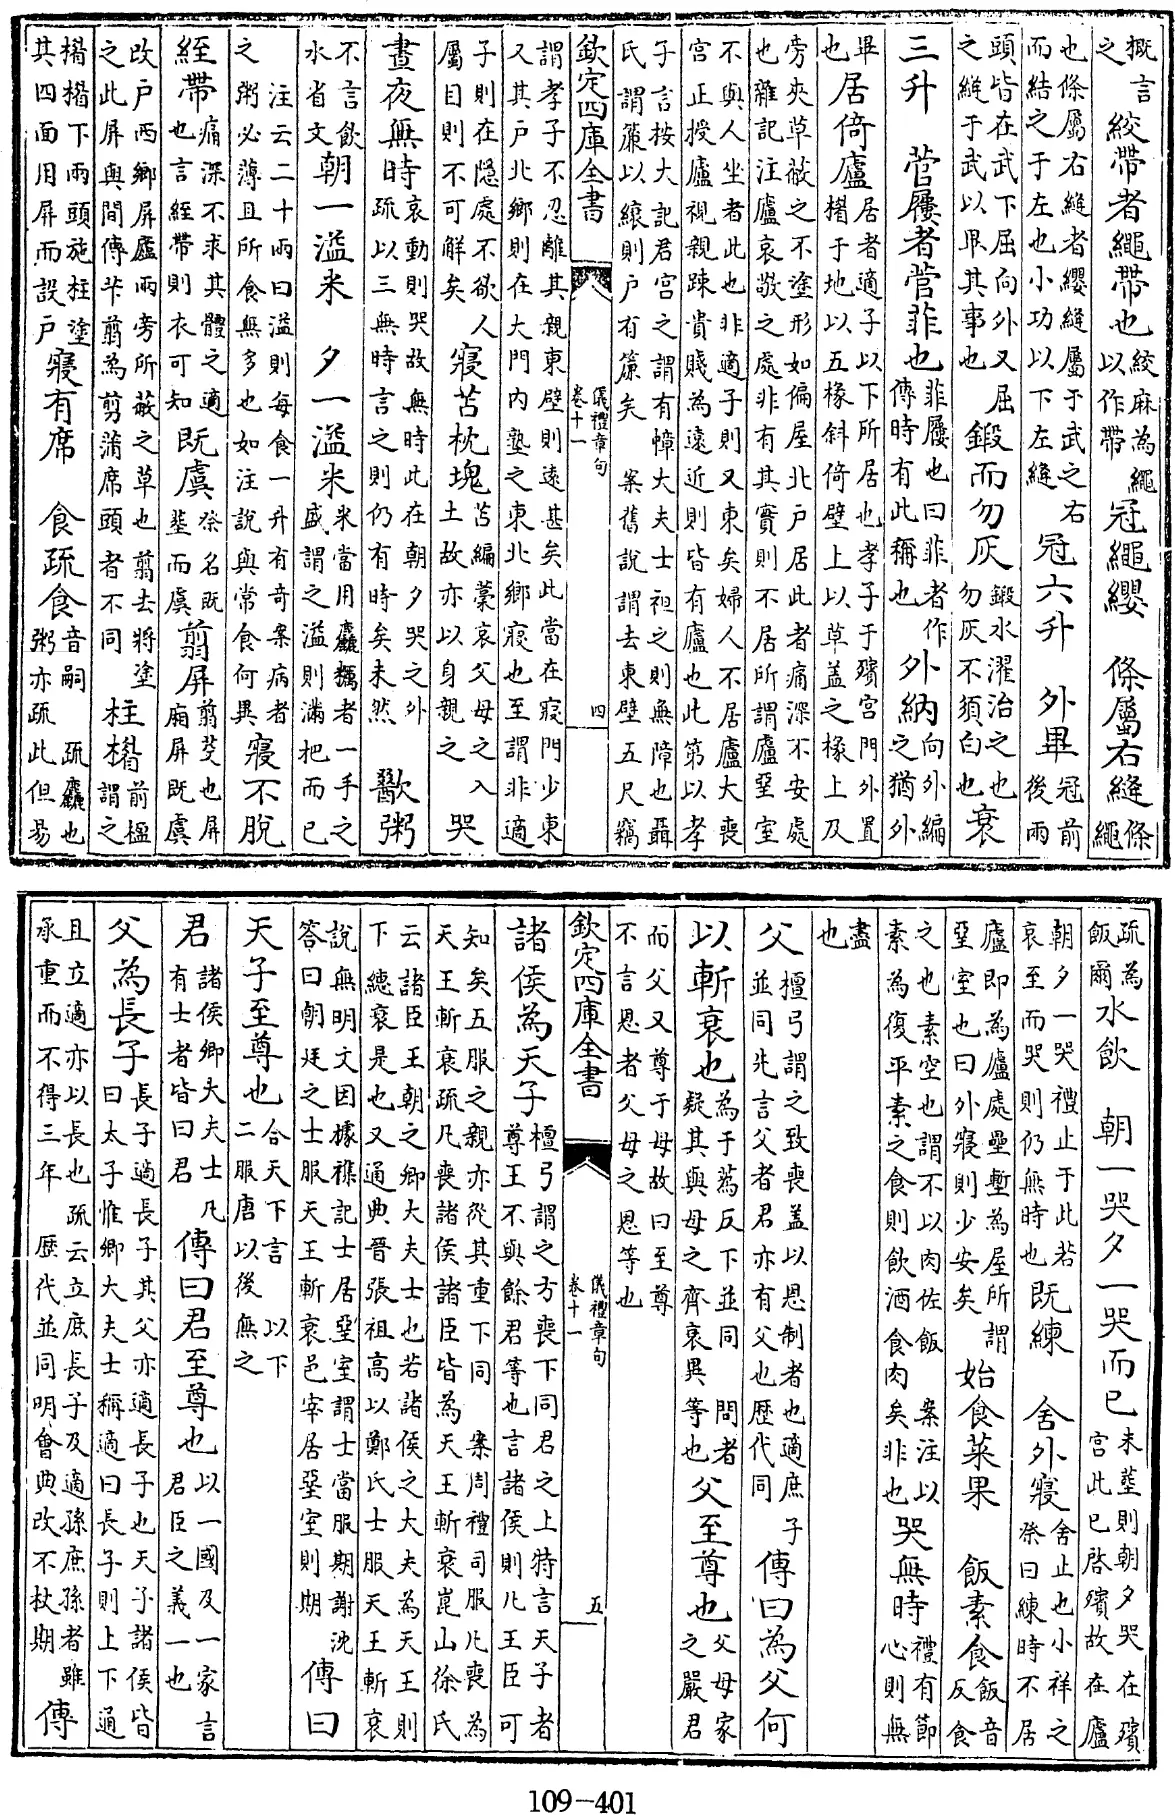 概言之絞帶者繩帶也絞麻為繩以作帶冠繩纓 條屬右縫條繩
也條屬右縫者纓縫屬于武之右而結之于左也小功以下左縫冠六升 外畢冠前後兩
頭皆在武下屈向外又屈之縫于武以畢其事也鍛而勿灰鍛水濯治之也勿灰不須白也衰
三升 菅屨者菅菲也菲屨也曰菲者作傳時有此稱也外納向外編之猶外
畢也居倚廬居者適子以下所居也孝子于殯宮門外置楣于地以五椽斜倚壁上以草盖之椽上及
旁夾草蔽之不塗形如偏屋北戶居此者痛深不安處也雜記注廬哀敬之處非有其實則不居所謂廬堊室
不與人坐者此也非適子則又東矣婦人不居廬大喪宮正授廬視親踈貴賤為遠近則皆有廬也此第以孝
子言按大記君宮之謂有幛大夫士袒之則無障也聶氏謂簾以縗則戶有簾矣 案舊說謂去東壁五尺竊
欽定四庫全書 儀禮章句 卷十一 四
謂孝子不忍離其親東壁則遠甚矣此當在寢門少東又其戶北鄉則在大門內塾之東北鄉寢也至謂非適
子則在隱處不欲人屬目則不可解矣寢苫枕塊苫編藁哀父母之入土故亦以身親之哭
晝夜無時哀動則哭故無時此在朝夕哭之外疏以三無時言之則仍有時矣未然歠粥
不言飲水省文朝一溢米 夕一溢米米當用麤糲者一手之盛謂之溢則滿把而已
注云二十兩曰溢則每食一升有奇案病者之粥必薄且所食無多也如注說與常食何異寢不脫
絰帶痛深不求其體之適也言絰帶則衣可知既虞祭名既葬而虞翦屏翦芟也屏廂屏既虞
改戶西鄉屏廬兩旁所蔽之草也翦去將塗之此屏與間傳芐翦為剪蒲席頭者不同柱楣前楹謂之
楣楣下兩頭施柱塗其四面用屏而設戶寢有席 食疏食音嗣 疏麤也粥亦疏此但易
疏為飯爾水飲 朝一哭夕一哭而已未葬則朝夕哭在殯宮此已啓殯故在廬
朝夕一哭禮止于此若哀至而哭則仍無時也既練 舍外寢舍止也小祥之祭曰練時不居
廬即為廬處壘塹為屋所謂堊室也曰外寢則少安矣始食菜果 飯素食飯音反食
之也素空也謂不以肉佐飯 案注以素為復平素之食則飲酒食肉矣非也哭無時禮有節心則無
盡也
父檀弓謂之致喪盖以恩制者也適庶子並同先言父者君亦有父也歷代同傳曰為父何
以斬衰也為于為反下並同 問者疑其與母之齊衰異等也父至尊也父母家之嚴君
而父又尊于母故曰至尊不言恩者父母之恩等也
欽定四庫全書 儀禮章句 卷十一 五
諸侯為天子檀弓謂之方喪下同君之上特言天子者尊王不與餘君等也言諸侯則凡王臣可
知矣五服之親亦從其重下同 案周禮司服凡喪為天王斬衰疏凡喪諸侯諸臣皆為天王斬衰崑山徐氏
云諸臣王朝之卿大夫士也若諸侯之大夫為天王則下繐衰是也又通典晉張祖高以鄭氏士服天王斬衰
說無明文因據襍記士居堊室謂士當服期謝沈答曰朝廷之士服天王斬衰邑宰居堊室則期傳曰
天子至尊也合天下言 以下二服唐以後無之
君諸侯卿大夫士凡有士者皆曰君傳曰君至尊也以一國及一家言君臣之義一也
父為長子長子適長子其父亦適長子也天子諸侯皆曰太子惟卿大夫士稱適曰長子則上下通
且立適亦以長也疏云立庶長子及適孫庶孫者雖承重而不得三年 歷代並同明會典改不杖期傳
109-401